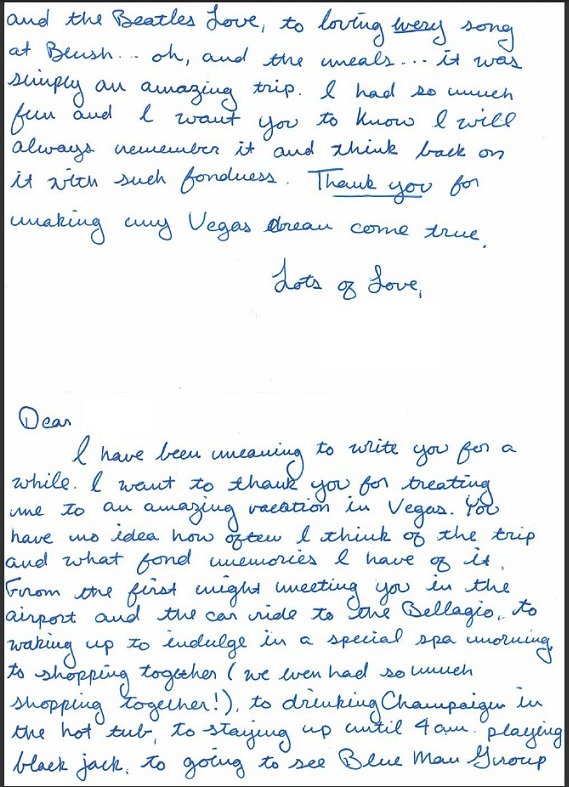 and the Beatles Love, to loving every song
at Blush... oh, and the meals... it was
simply an amazing trip. I had so much
fun and I want you to know I will
always remember it and think back on
it with such fondness. Thank you for
making my Vegas dream come true.
Lots of Love,
Dear
I have been meaning to write you for a
while. I want to thank you for treating
me to an amazing vacation in Vegas. You
have no idea how often I think of the trip
and what fond memories I have of it.
From the first night meeting you in the
airport and the car ride to the Bellagio, to
waking up to indulge in a special spa morning,
to shopping together (we even had so much
shopping together!), to drinking Champaign in
the hot tub, to staying up until 4am. playing
black jack, to going to see Blue Man Group